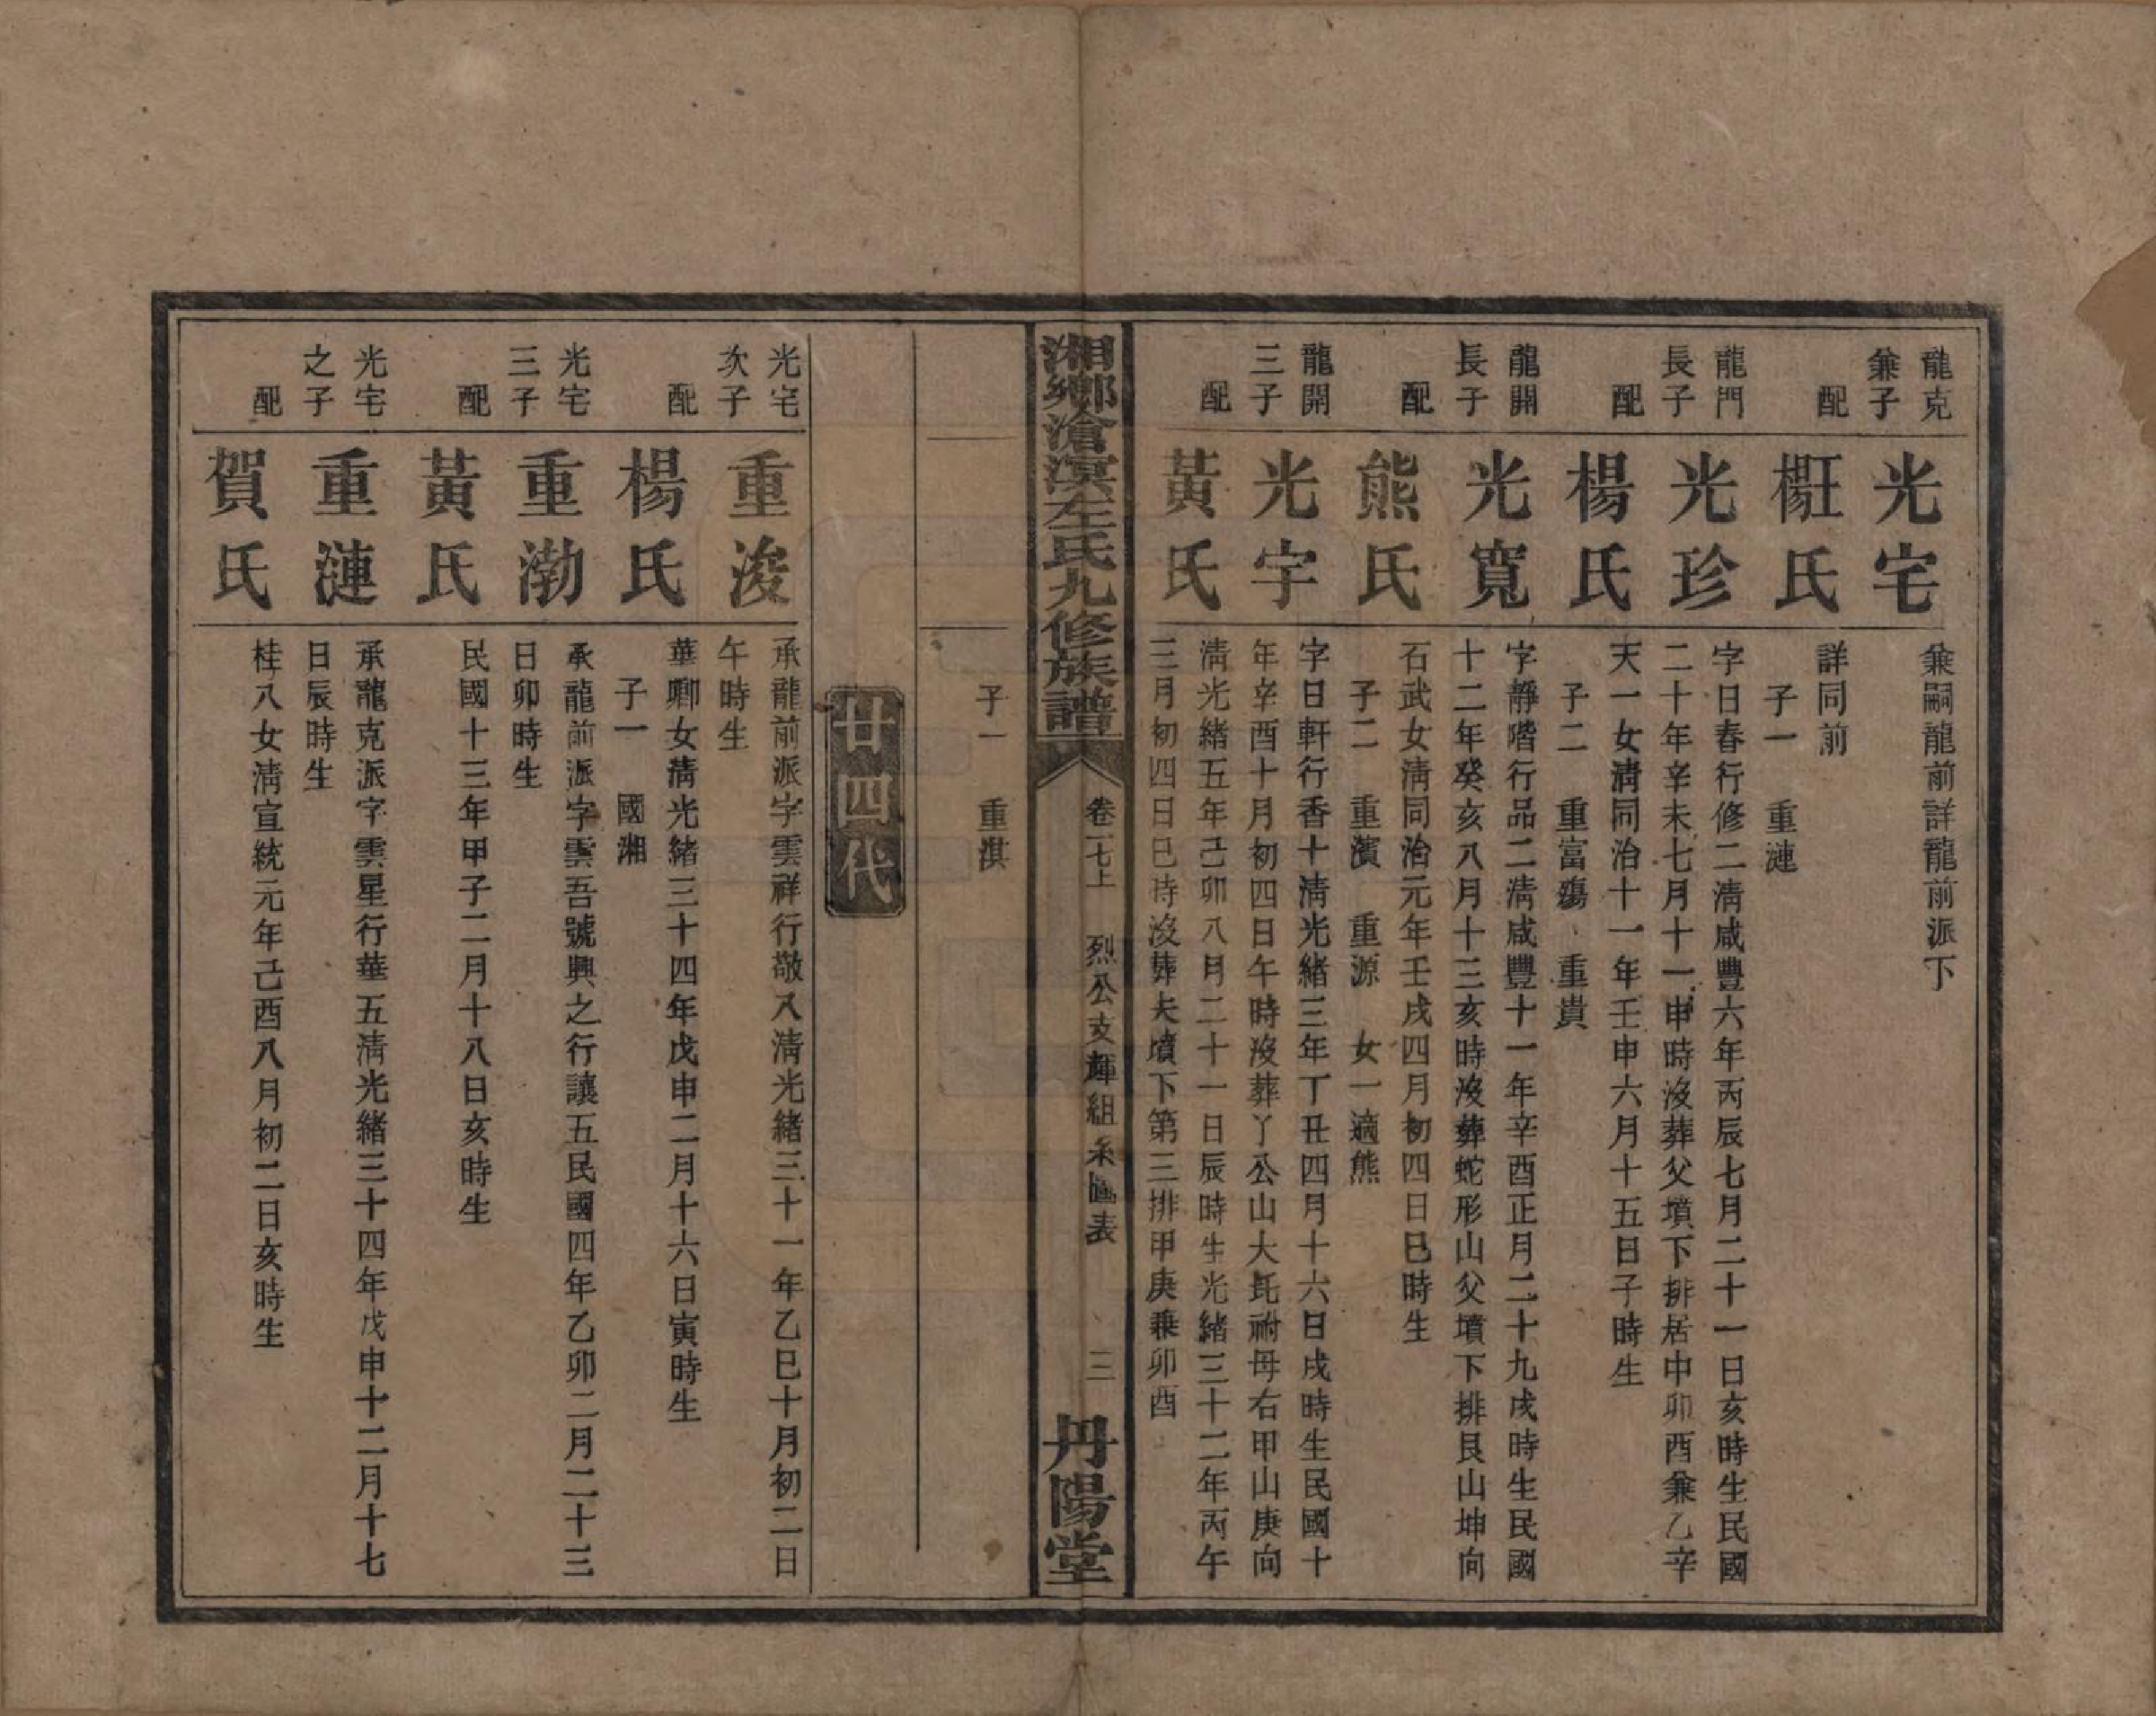 龍克
兼子
光宅
兼嗣龍前詳龍前派下
配
氏
詳同前
子一 重漣
龍門
長子
光珍
字日春行修二淸咸豐六年丙辰七月二十一日亥時生民國
二十年辛未七月十一申時沒葬父墳下排居中卯酉兼乙辛
配
楊氏
天一女淸同治十一年壬申六月十五日子時生
子二 重富殤 重貴
龍開
長子
光寬
字靜階行品二淸咸豐十一年辛酉正月二十九戌時生民國
十二年癸亥八月十三亥時沒葬蛇形山父墳下排艮山坤向
配
熊氏
石武女淸同治元年壬戌四月初四日巳時生
子二 重濱 重源 女一適熊
龍開
三子
光宇
字日軒行香十淸光緒三年丁丑四月十六日戌時生民國十
年辛酉十月初四日午時沒葬丫公山大托祔母右甲山庚向
配
黃氏
淸光緒五年己卯八月二十一日辰時生光緒三十二年丙午
三月初四日巳時沒葬夫墳下第三排甲庚兼卯酉
湘鄉滄溟左氏九修族譜
卷二七上
烈公支輝組系圖表
三
丹陽堂
子一 重淇
廿四代
光宅
次子
重浚
承龍前派字雲祥行敬八淸光緒三十一年乙巳十月初二日
午時生
配
楊氏
華卿女淸光緒三十四年戊申二月十六日寅時生
子一 國湘
光宅
三子
重渤
承龍前派字雲吾號興之行讓五民國四年乙卯二月二十三
日卯時生
配
黃氏
民國十三年甲子二月十八日亥時生
光宅
之子
重漣
承龍克派字雲星行華五淸光緒三十四年戊申十二月十七
日辰時生
配
賀氏
桂八女淸宣統元年己酉八月初二日亥時生